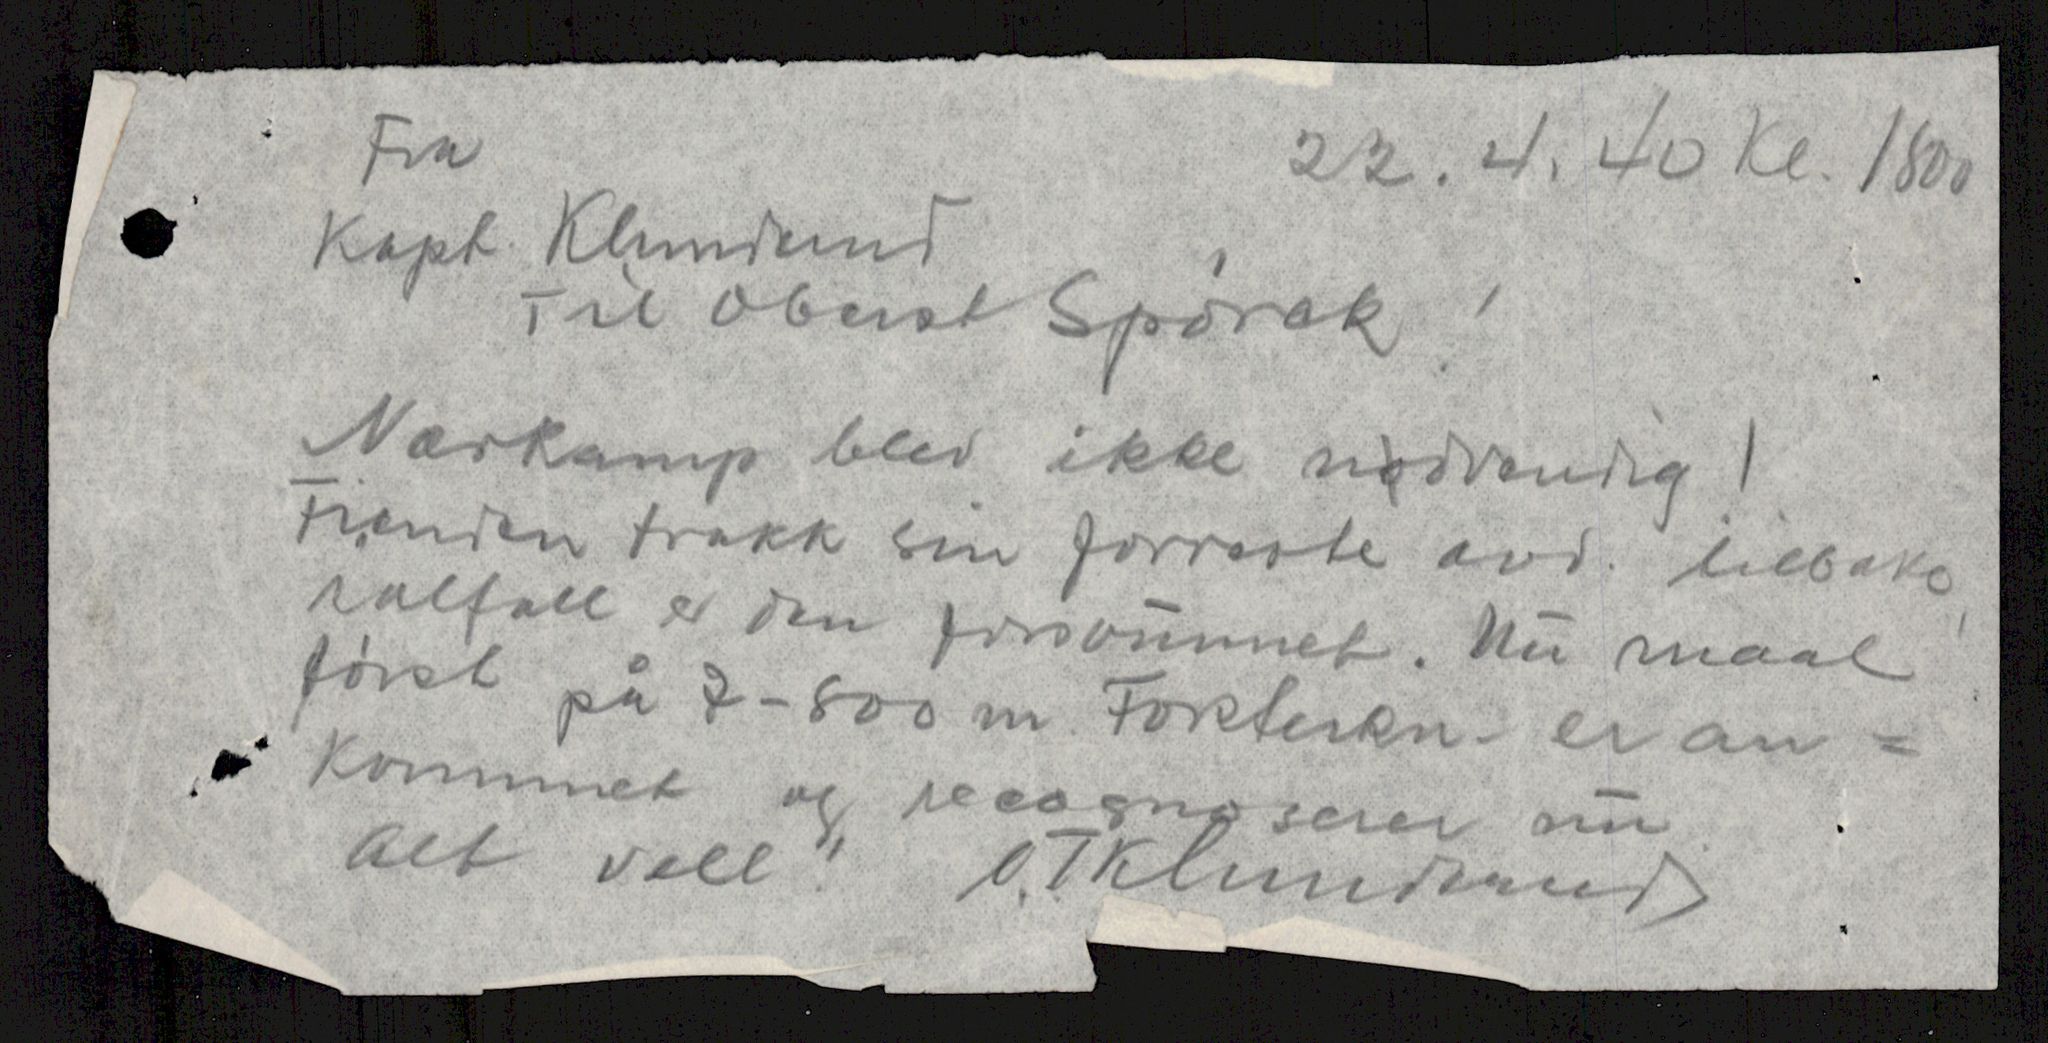 Fra 22.4.40 Kl. 1800
Kapt. Klunderud
Til Oberst Spörck!
Nærkamp blev ikke nødvendig!
Fienden trakk sin forreste avd. tilbake,
ialfall er den forsvunnet. Nu maal
först på 7-800 m. Forsterkn. er an=
kommet og recognoserer nu.
Alt vell! O.T Klunderud